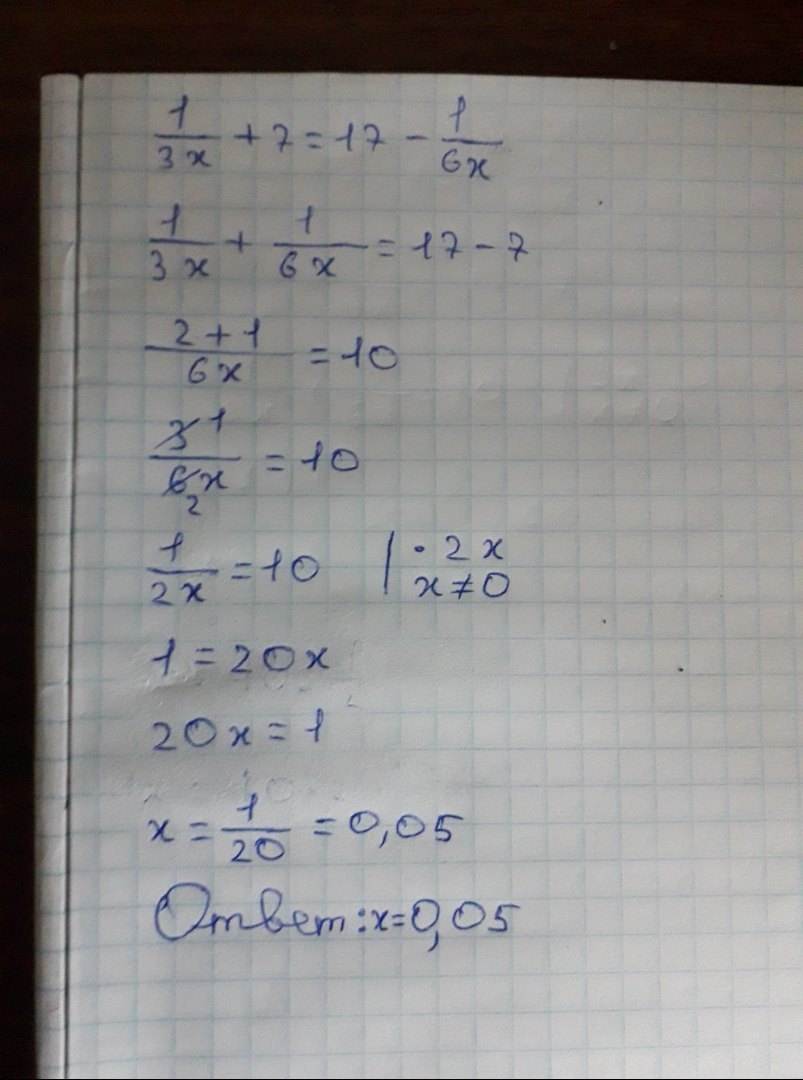 1/(3x) + 7 = 17 - 1/(6x)
1/(3x) + 1/(6x) = 17 - 7
(2 + 1)/(6x) = 10
3 1/(6 2 x) = 10
1/(2x) = 10 | · 2x
x ≠ 0
1 = 20x
20x = 1
x = 1/20 = 0,05
Ответ: x = 0,05